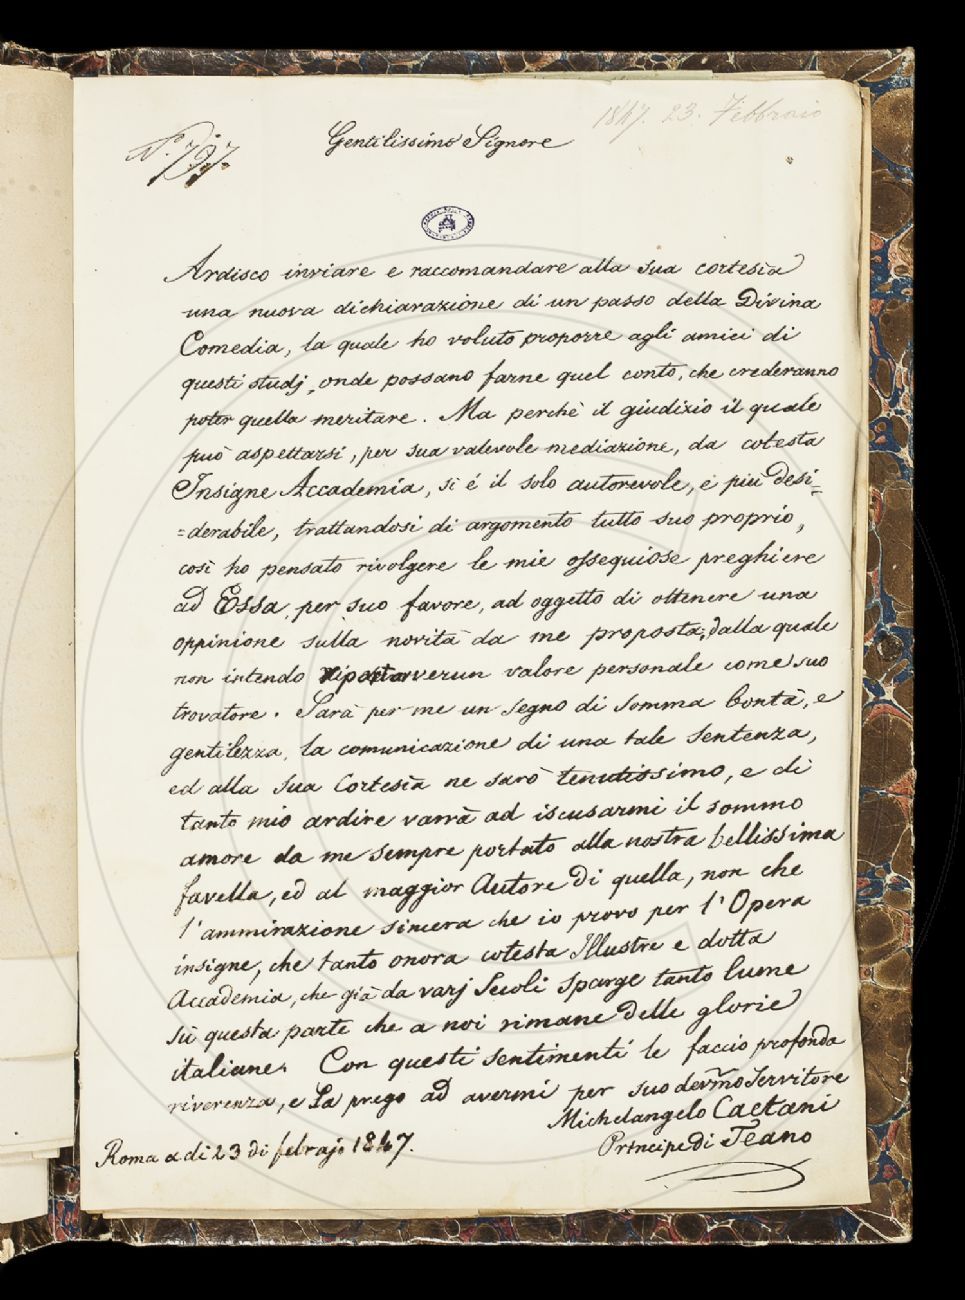 1847. 23. Febbraio
N.° 797.
Gentilissimo Signore
Ardisco inviare e raccomandare alla sua cortesia
una nuova dichiarazione di un passo della Divina
Comedia, la quale ho voluto proporre agli amici di
questi studj, onde possano farne quel conto, che crederanno
poter quella meritare. Ma perchè il giudizio il quale
può aspettarsi, per sua valevole mediazione, da cotesta
Insigne Accademia, si é il solo autorevole, e più desi=
=derabile, trattandosi di argomento tutto suo proprio,
così ho pensato rivolgere le mie ossequiose preghiere
ad Essa, per suo favore, ad oggetto di ottenere una
oppinione sulla novità da me proposta; dalla quale
non intendo verun valore personale come suo
trovatore. Sarà per me un segno di somma bontà, e
gentilezza, la comunicazione di una tale sentenza,
ed alla sua Cortesia ne sarò tenutissimo, e di
tanto mio ardire varrà ad iscusarmi il sommo
amore da me sempre portato alla nostra bellissima
favella, ed al maggior Autore di quella, non che
l'ammirazione sincera che io provo per l'Opera
insigne, che tanto onora cotesta Illustre e dotta
Accademia, che già da varj Secoli sparge tanto lume
sù questa parte che a noi rimane delle glorie
italiane. Con questi sentimenti le faccio profonda
riverenza, e La prego ad avermi per suo devmo Servitore
Michelangelo Caetani
Principe di Teano
Roma a dì 23 di febrajo 1847.